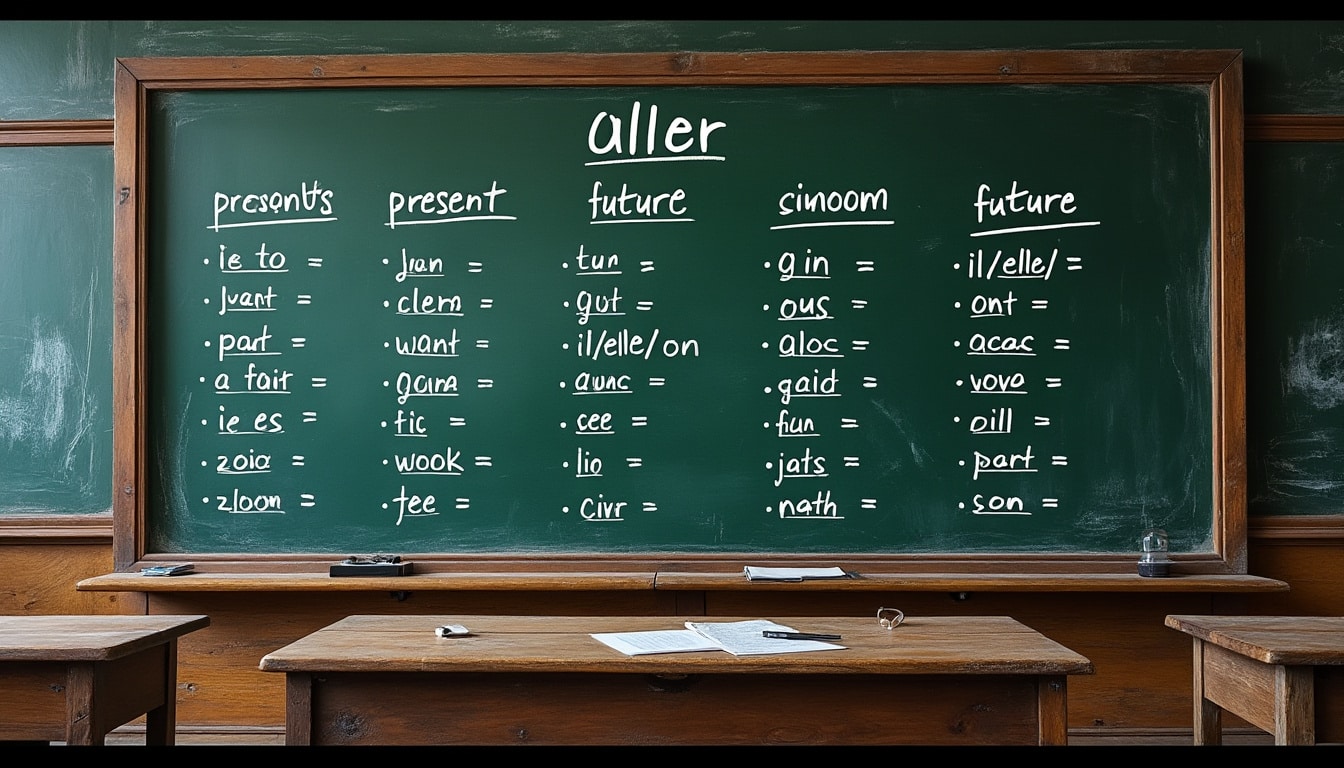 aller
presents present future sinoom future
• ie to = • Juan = • tun = • gin = • il/elle/ =
• Juant = • clem = • gut = • ous = • ont =
• part = • want = • il/elle/on • aloc = • acac =
• a fait = • gama = • aunc = • gaid = • vovo =
• ie es = • fic = • cee = • fun = • oill =
• zoia = • wook = • lio = • jats = • part =
• zloon = • fee = • Civr = • nath = • son =